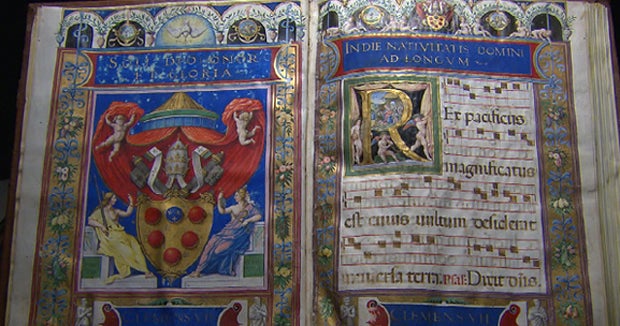 SOLI DEO HONOR
ET GLORIA
CLEMENS VII
IN DIE NATIVITATIS DOMINI
AD LONGVM
REx pacificus
magnificatus
est cuius vultum desiderat
universa terra. PSAL. Dixit dñs.
CLEMENS VII